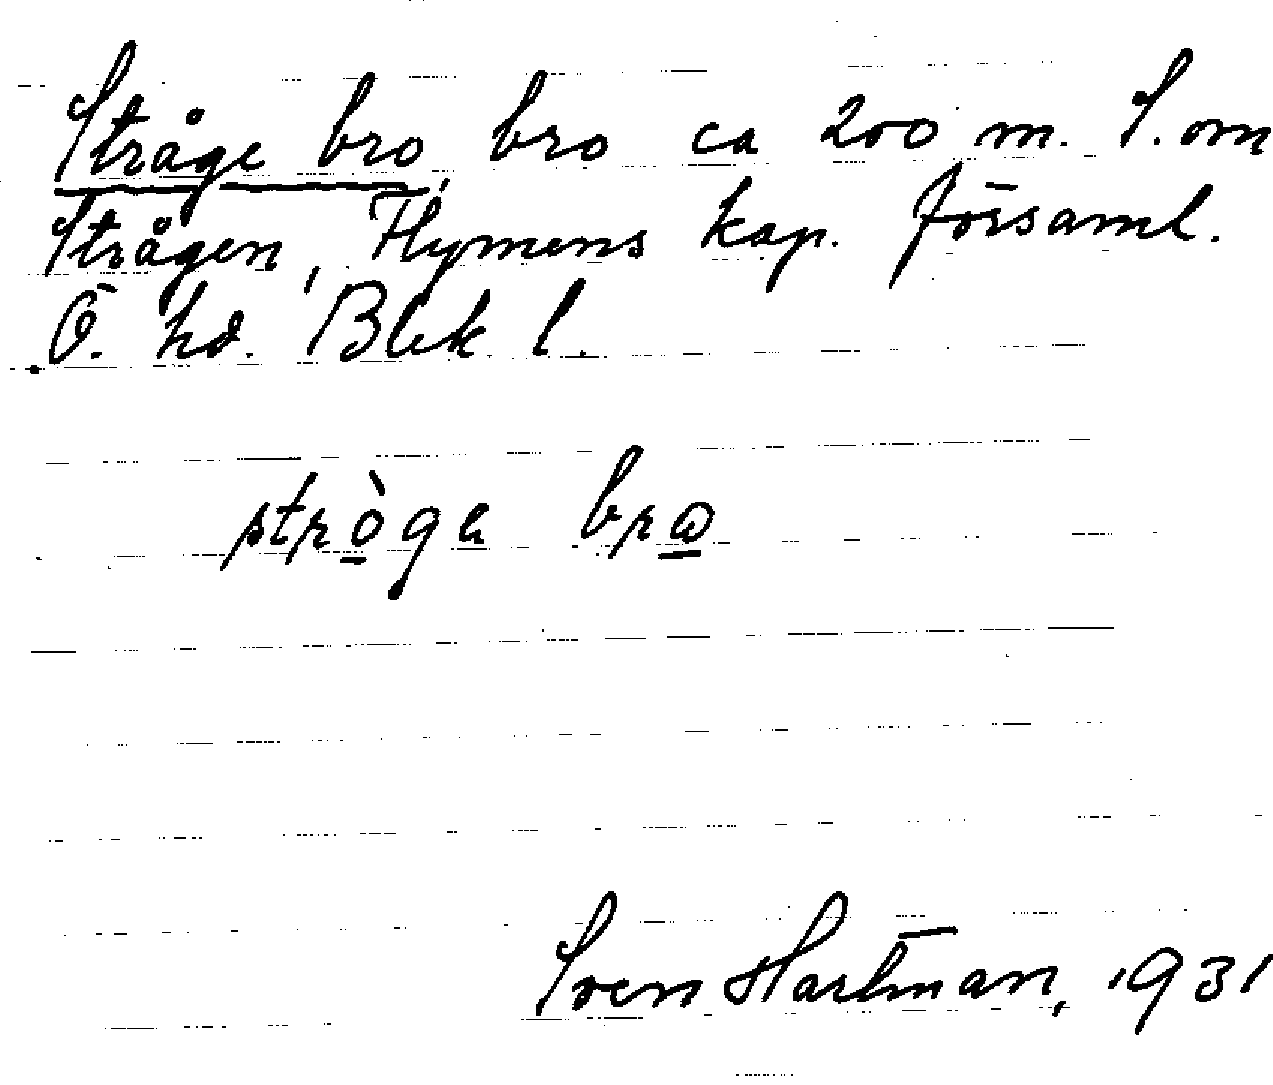 Stråge bro, bro ca 200 m. S. om
Strågen, Flymens kap. församl.
Ö. hd. Blek l.
stròga bro
Sven Hartman, 1931